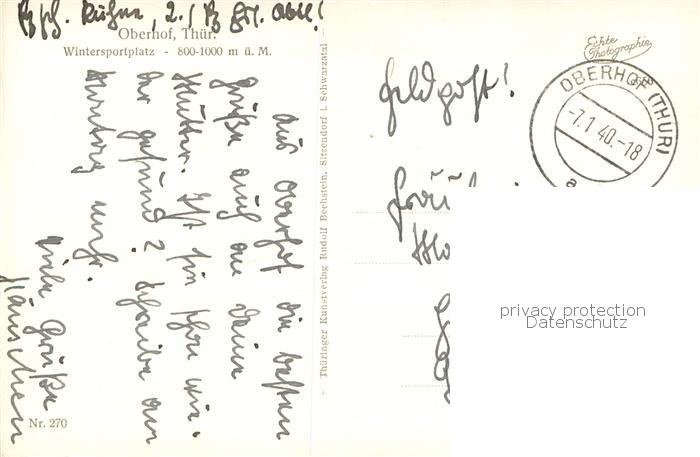 Oberhof, Thür.
Wintersportplatz - 800-1000 m ü. M.
Aus Oberhof die besten
Grüße auch an Deine
Mutter. Ist sie schon wie-
der gesund? Schreibe am
Montag mehr.
Viele Grüße
Hänschen
Nr. 270
- Thüringer Kunstverlag Rudolf Bechstein, Sitzendorf i. Schwarzatal -
Echte
Photographie
Feldpost!
OBERHOF (THÜR)
-7.1 40.-18
a
Fräul
privacy protection
Datenschutz